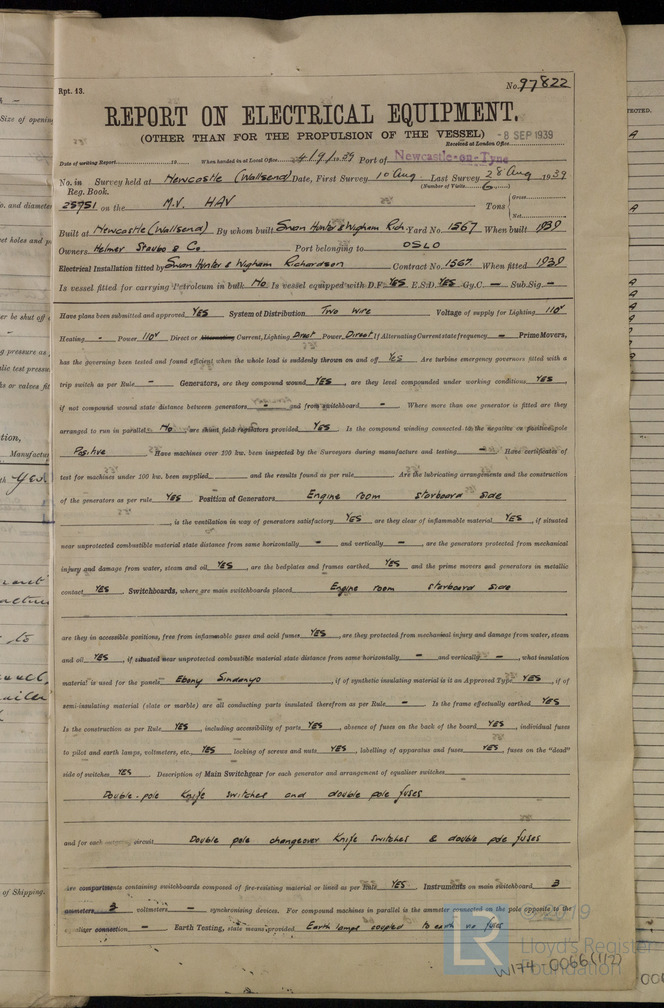 Rpt. 13.
No. 97822
REPORT ON ELECTRICAL EQUIPMENT.
(OTHER THAN FOR THE PROPULSION OF THE VESSEL)
-8 SEP 1939
Received at London Office
Date of writing Report 19 When handed in at Local Office 4/9/1939 Port of Newcastle-on-Tyne
No. in Survey held at Newcastle (Wallsend) Date, First Survey 10 Aug Last Survey 28 Aug 1939
Reg. Book. (Number of Visits 6)
25951 on the M.V. HAV Tons { Gross
Net
Built at Newcastle (Wallsend) By whom built Swan Hunter & Wigham Rich. Yard No. 1567 When built 1939
Owners Helmer Staubo & Co Port belonging to OSLO
Electrical Installation fitted by Swan Hunter & Wigham Richardson Contract No. 1567 When fitted 1939
Is vessel fitted for carrying Petroleum in bulk No. Is vessel equipped with D.F. YES E.S.D. YES Gy.C. — Sub.Sig. —
Have plans been submitted and approved YES System of Distribution Two wire Voltage of supply for Lighting 110V
Heating - Power 110V Direct or Alternating Current, Lighting Direct Power Direct If Alternating Current state frequency — Prime Movers,
has the governing been tested and found efficient when the whole load is suddenly thrown on and off Yes Are turbine emergency governors fitted with a
trip switch as per Rule - Generators, are they compound wound YES, are they level compounded under working conditions YES,
if not compound wound state distance between generators - and from switchboard - Where more than one generator is fitted are they
arranged to run in parallel No, are shunt field regulators provided YES Is the compound winding connected to the negative or positive pole
Positive Have machines over 100 kw. been inspected by the Surveyors during manufacture and testing — Have certificates of
test for machines under 100 kw. been supplied and the results found as per rule Are the lubricating arrangements and the construction
of the generators as per rule YES Position of Generators Engine room starboard side
, is the ventilation in way of generators satisfactory YES are they clear of inflammable material YES, if situated
near unprotected combustible material state distance from same horizontally - and vertically -, are the generators protected from mechanical
injury and damage from water, steam and oil YES, are the bedplates and frames earthed YES and the prime movers and generators in metallic
contact YES Switchboards, where are main switchboards placed Engine room starboard side
are they in accessible positions, free from inflammable gases and acid fumes YES, are they protected from mechanical injury and damage from water, steam
and oil YES, if situated near unprotected combustible material state distance from same horizontally - and vertically -, what insulation
material is used for the panels Ebony Sindanyo, if of synthetic insulating material is it an Approved Type YES, if of
semi-insulating material (slate or marble) are all conducting parts insulated therefrom as per Rule - Is the frame effectually earthed YES
Is the construction as per Rule YES, including accessibility of parts YES, absence of fuses on the back of the board YES, individual fuses
to pilot and earth lamps, voltmeters, etc. YES locking of screws and nuts YES, labelling of apparatus and fuses YES, fuses on the "dead"
side of switches YES. Description of Main Switchgear for each generator and arrangement of equaliser switches
Double-pole Knife switches and double pole fuses
and for each outgoing circuit Double pole changeover Knife switches & double pole fuses
Are compartments containing switchboards composed of fire-resisting material or lined as per Rule YES Instruments on main switchboard 3
ammeters 3 voltmeters - synchronising devices. For compound machines in parallel is the ammeter connected on the pole opposite to the
equaliser connection - Earth Testing, state means provided Earth lamps coupled to earth via fuses
© 2019
LR
Lloyd's Register
Foundation
W174-0066(1/2)